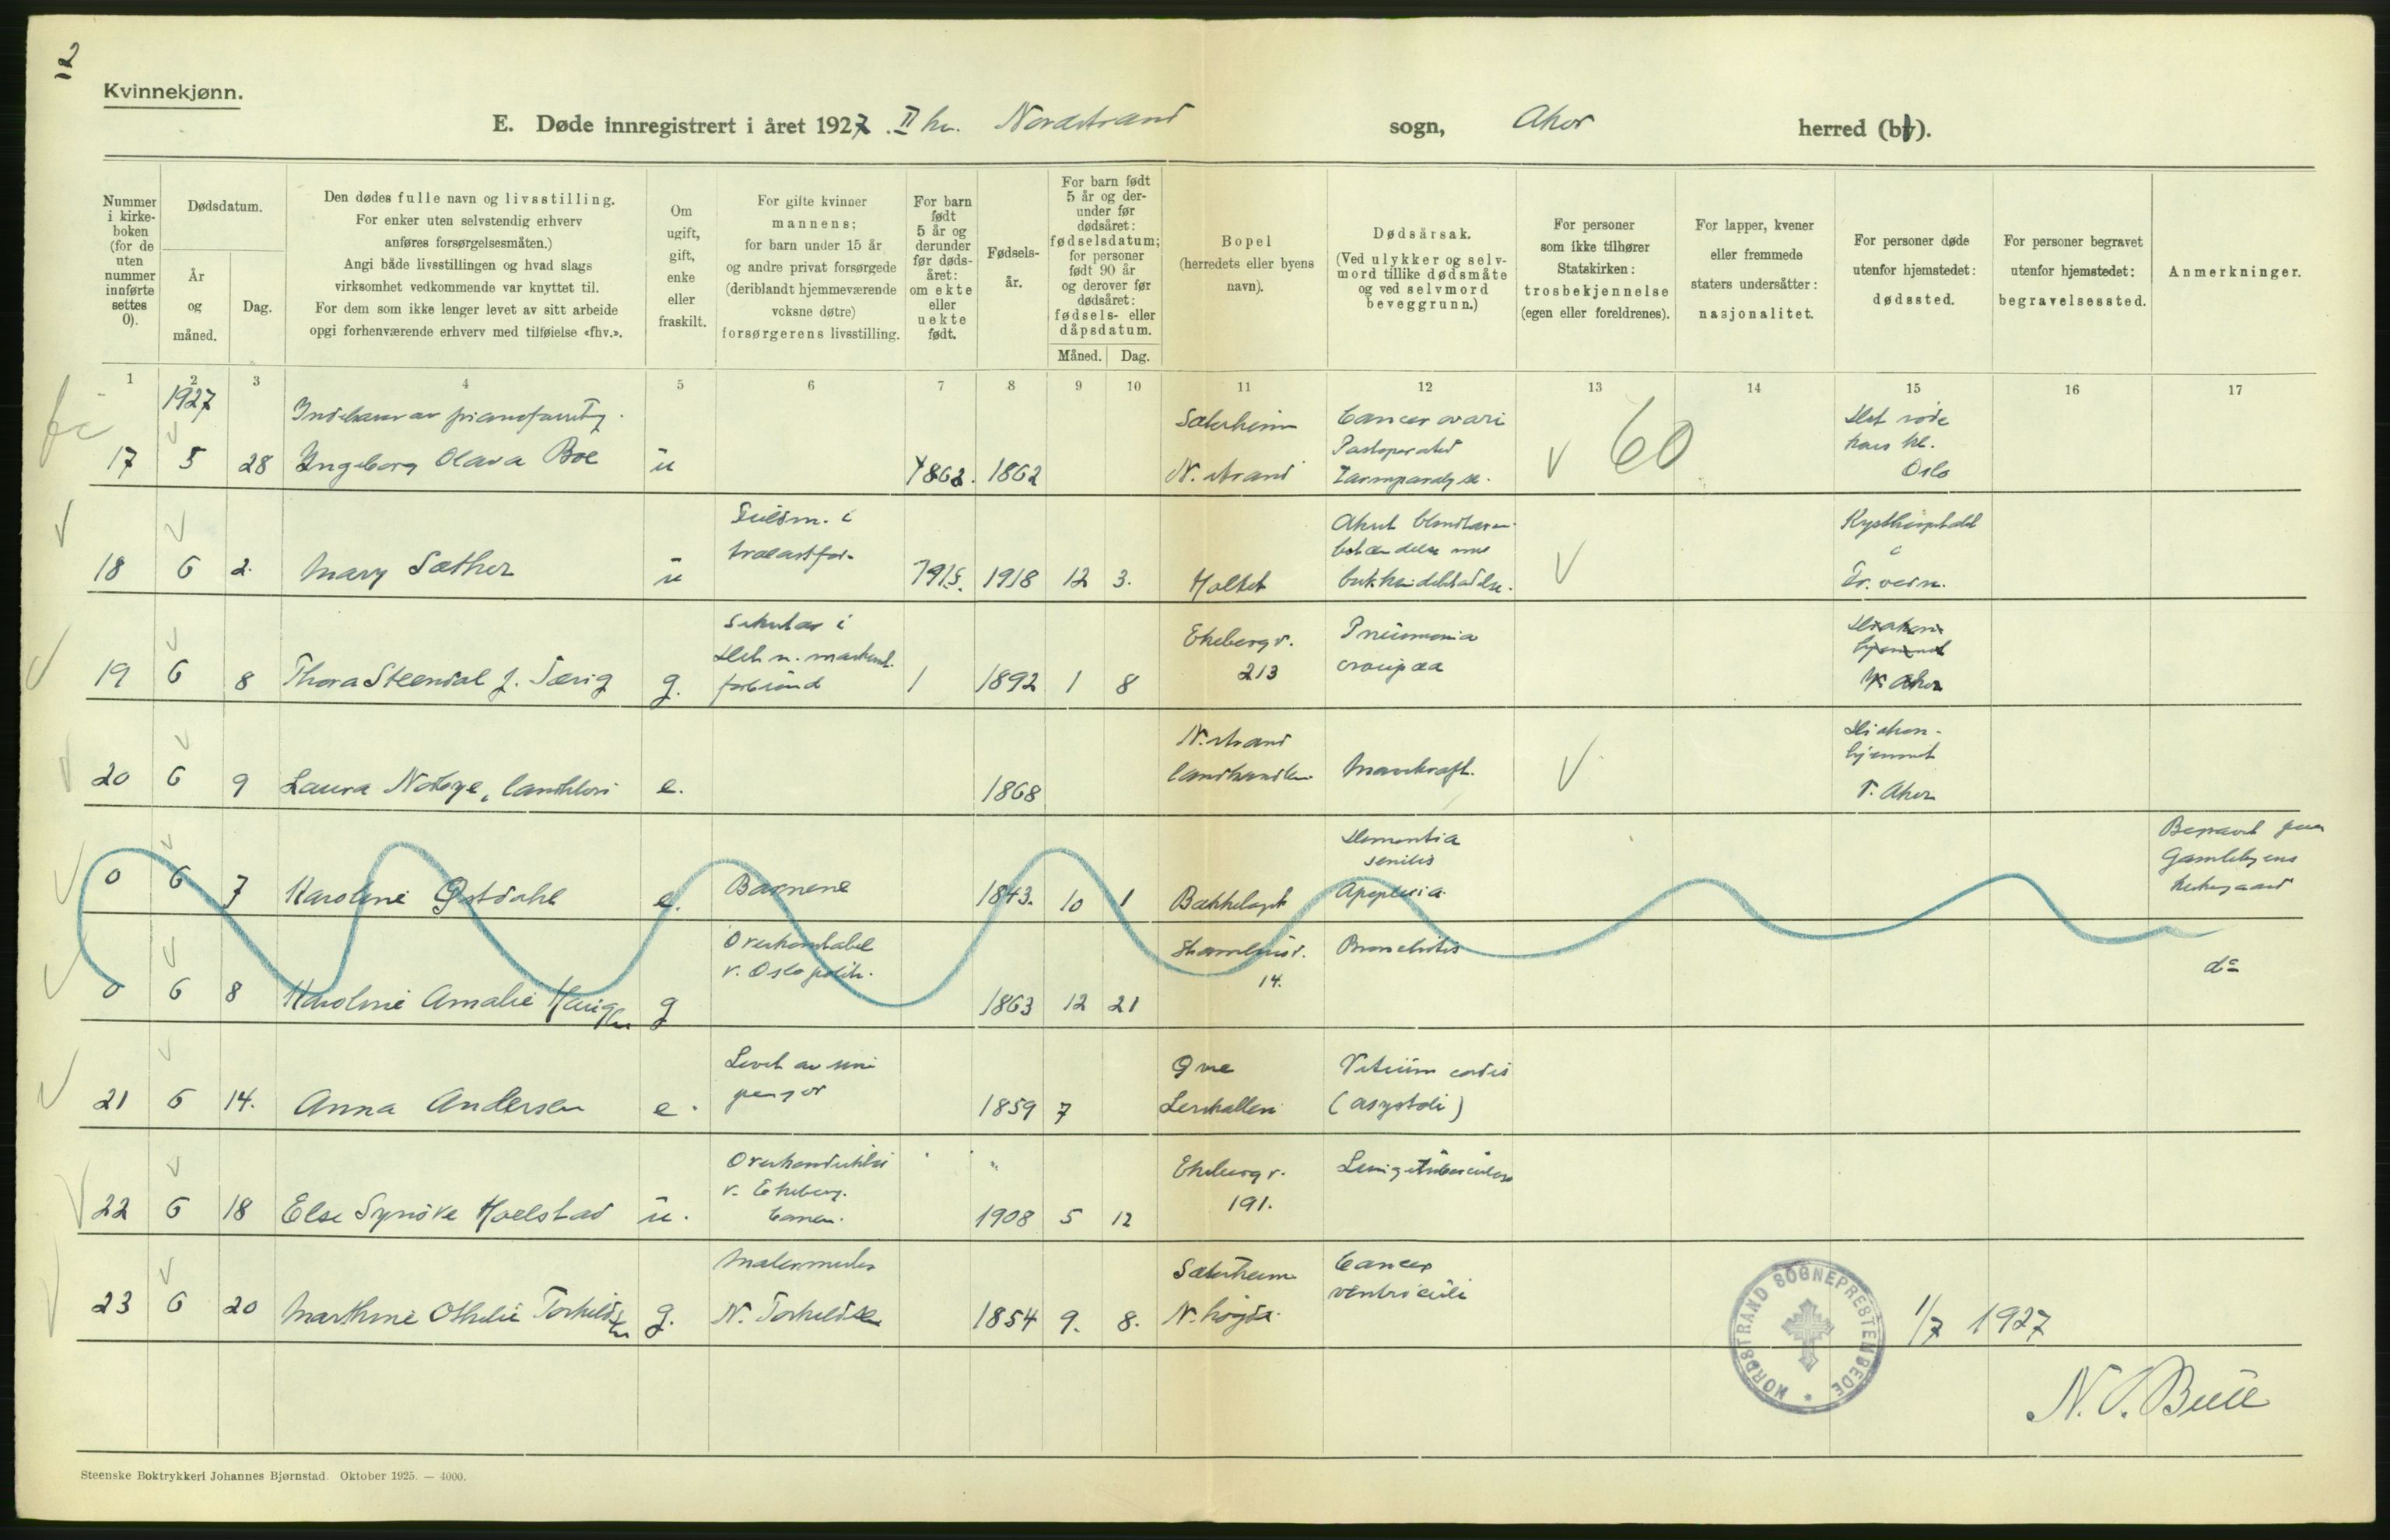 2
Kvinnekjønn.
E. Døde innregistrert i året 1927. II kv. Nordstrand sogn, Aker herred (by).
Nummer i kirkeboken (for de uten nummer innførte settes 0).
Dødsdatum.
År og måned.
Dag.
Den dødes fulle navn og livsstilling.
For enker uten selvstendig erhverv
anføres forsørgelsesmåten.)
Angi både livsstillingen og hvad slags
virksomhet vedkommende var knyttet til.
For dem som ikke lenger levet av sitt arbeide
opgi forhenværende erhverv med tilføielse «fhv.».
Om ugift, gift, enke eller fraskilt.
For gifte kvinner
mannens;
for barn under 15 år
og andre privat forsørgede
(deriblandt hjemmeværende
voksne døtre)
forsørgerens livsstilling.
For barn født 5 år og derunder før dødsåret: om ekte eller uekte født.
Fødselsår.
For barn født 5 år og derunder før dødsåret: fødselsdatum; for personer født 90 år og derover før dødsåret: fødsels- eller dåpsdatum.
Måned.
Dag.
Bopel
(herredets eller byens
navn).
Dødsårsak.
(Ved ulykker og selvmord tillike dødsmåte og ved selvmord beveggrunn.)
For personer
som ikke tilhører
Statskirken:
trosbekjennelse
(egen eller foreldrenes).
For lapper, kvener
eller fremmede
staters undersåtter:
nasjonalitet.
For personer døde
utenfor hjemstedet:
dødssted.
For personer begravet
utenfor hjemstedet:
begravelsessted.
Anmerkninger.
1 2 3 4 5 6 7 8 9 10 11 12 13 14 15 16 17
1927
17 5 28 Ingeborg Olava Boe u 1862. 1862
Sæterheim
N. strand
Cancer ovari
Postoperativ
Tarmparalyse.
60
Det røde
kors kl.
Oslo
18 6 2. Mary Sæther u
trælastfor.
1918 12 3. Holtet
Kysthospitalet
i
19 6 8 Thora Steendal f. g.
Sekretær i
Det n. maskinl.
forbund
1 1892 1 8
Ekeberg v.
213
Pneumonia
croupøa
Diakon
hjemmet
V. Aker
20 6 9 Laura e. 1868
N. strand
landhandleri
Marekraft.
Diakon-
hjemmet
V. Aker
0 6 7 Karoline Østdahl e. Barnene 1843. 10 1 Bækkelaget
Dementia
senilis
Apoplexia.
Begravet paa
Gamlebyens
kirkegaard
0 6 8 Karoline Amalie Haugen g
Overkonstabel
v. Oslo politi.
1863 12 21
14.
Bronchitis
do
21 6 14. Anna Andersen e.
Levet av sine
penger
1859 7
Øvre
Lerskallen
Vitium cordis
(asystoli)
22 6 18 Else Synøve Hoelstad u.
Overkonduktør
v. Ekeberg.
banen.
1908 5 12
Ekeberg v.
191.
Lungetuberculose
23 6 20 Marthine Othelie Torkildsen g.
Malermester
N. Torkildsen
1854 9. 8.
Sæterheim
N. høyda.
Cancer
ventriculi
NORDSTRAND SOGNEPRESTEMBEDE
1/7 1927
N. C. Bull
Steenske Boktrykkeri Johannes Bjørnstad. Oktober 1925. — 4000.